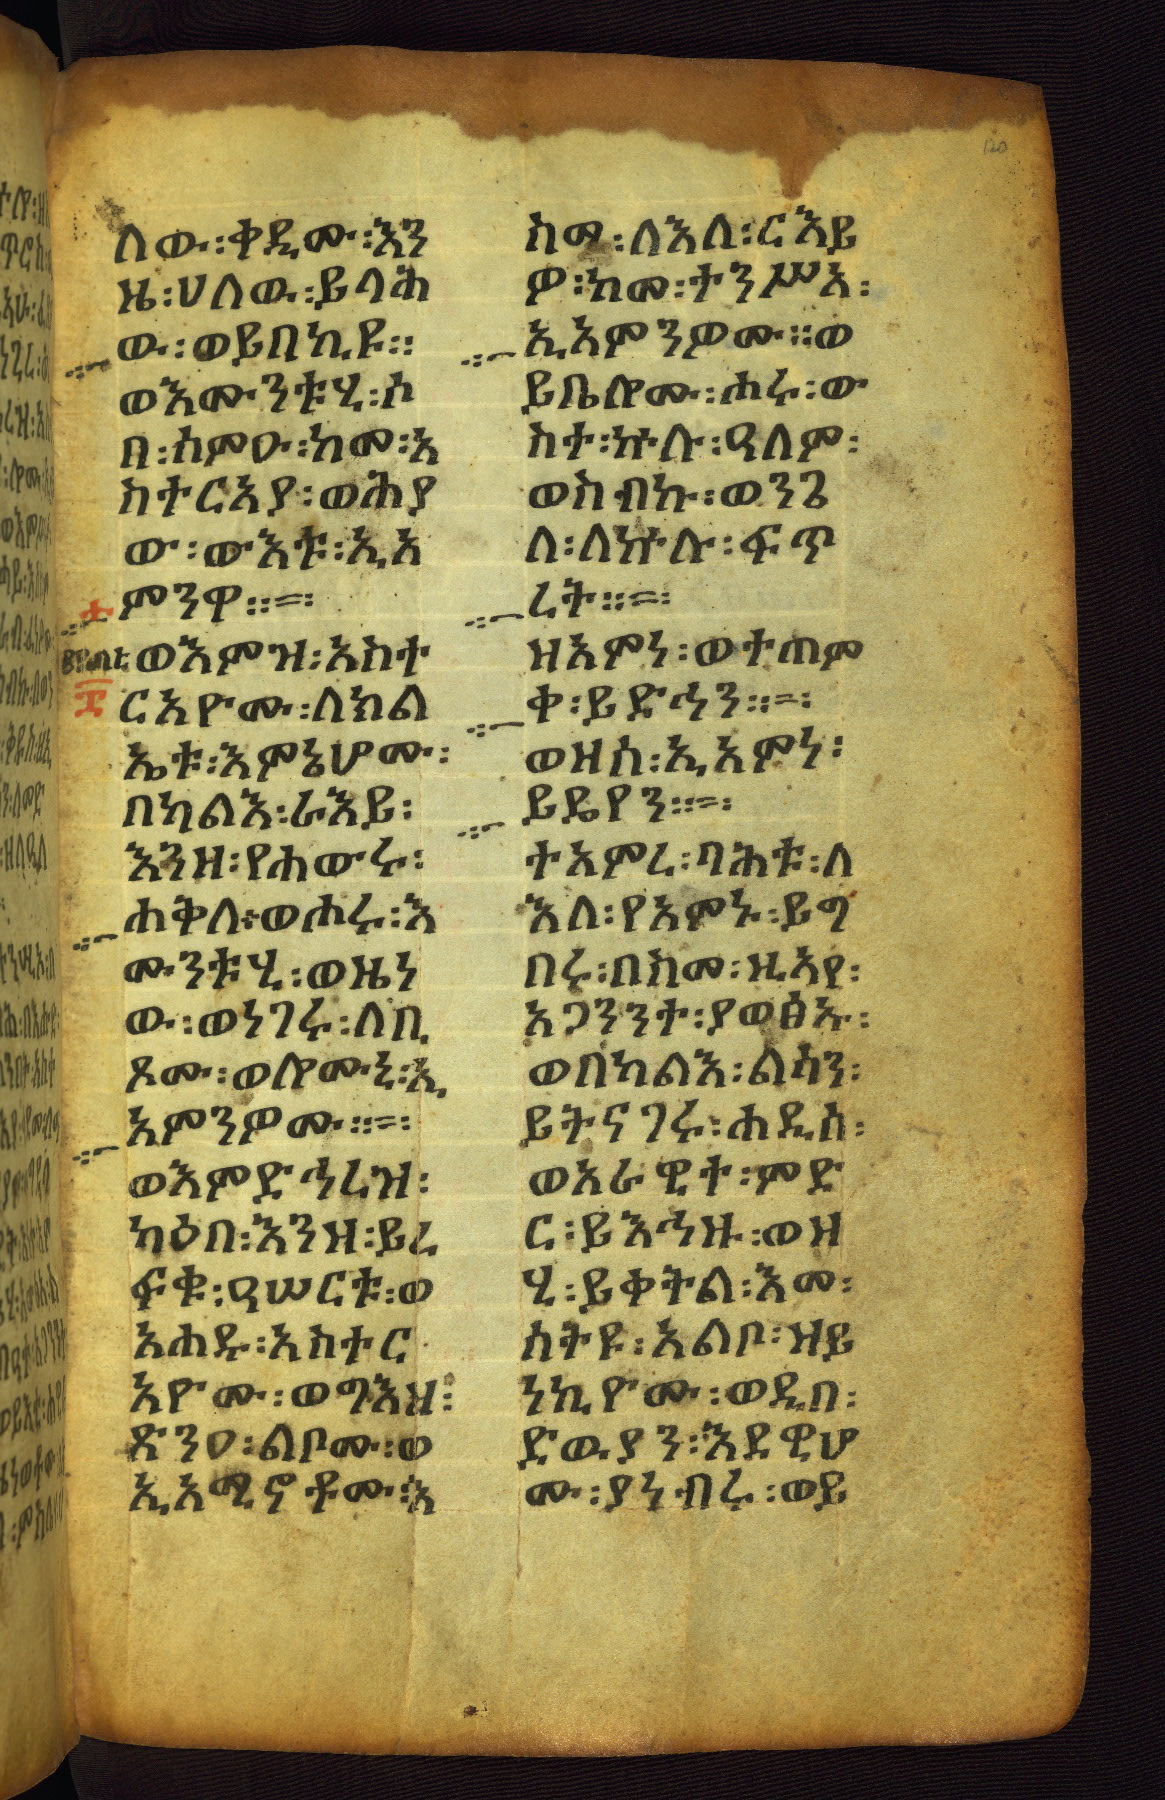 ለው፡ቀዲሙ፡እን
ዜ፡ሀለዉ፡ይላሕ
ው፡ወይበኪዩ።
ወእሙንቱሂ፡ሶ
በ፡ሰምዑ፡ከመ፡አ
ስተርአያ፡ወሕያ
ው፡ውእቱ፡ኢአ
ምንዋ።
ወእምዝ፡አስተ
ርአዮሙ፡ለክል
ኤቱ፡እምኔሆሙ፡
በካልእ፡ራእይ፡
እንዘ፡የሐውሩ፡
ሐቅለ፡ወሖሩ፡እ
ሙንቱሂ፡ወዜነ
ው፡ወነገሩ፡ለቢ
ጾሙ፡ወሎሙኒ፡ኢ
አምንዎሙ።
ወእምድኅረዝ፡
ካዕበ፡እንዘ፡ይረ
ፍቁ፡ዓሠርቱ፡ወ
አሐዱ፡አስተር
አዮሙ፡ወግእዘ፡
ጽንዐ፡ልቦሙ፡ወ
ኢአሚኖቶሙ፡እ
120
ስመ፡ለእለ፡ርእይ
ዎ፡ከመ፡ተንሥአ፡
ኢአምንዎሙ።ወ
ይቤሎሙ፡ሖሩ፡ው
ስተ፡ኵሉ፡ዓለም፡
ወስብኩ፡ወንጌ
ለ፡ለኵሉ፡ፍጥ
ረት።
ዘአምነ፡ወተጠም
ቀ፡ይድኅን።
ወዘሰ፡ኢአምነ፡
ይዴየን።
ተአምረ፡ባሕቱ፡ለ
እለ፡የአምኑ፡ይግ
በሩ፡በስመ፡ዚአየ፡
አጋንንተ፡ያወፅኡ፡
ወበካልእ፡ልሳን፡
ይትናገሩ፡ሐዲስ፡
ወአራዊተ፡ምድ
ር፡ይእኅዙ፡ወዘ
ሂ፡ይቀትል፡እመ፡
ሰትዩ፡አልቦ፡ዘይ
ነኪዮሙ፡ወዲበ፡
ድዉያን፡እደዊሆ
ሙ፡ያነብሩ፡ወይ